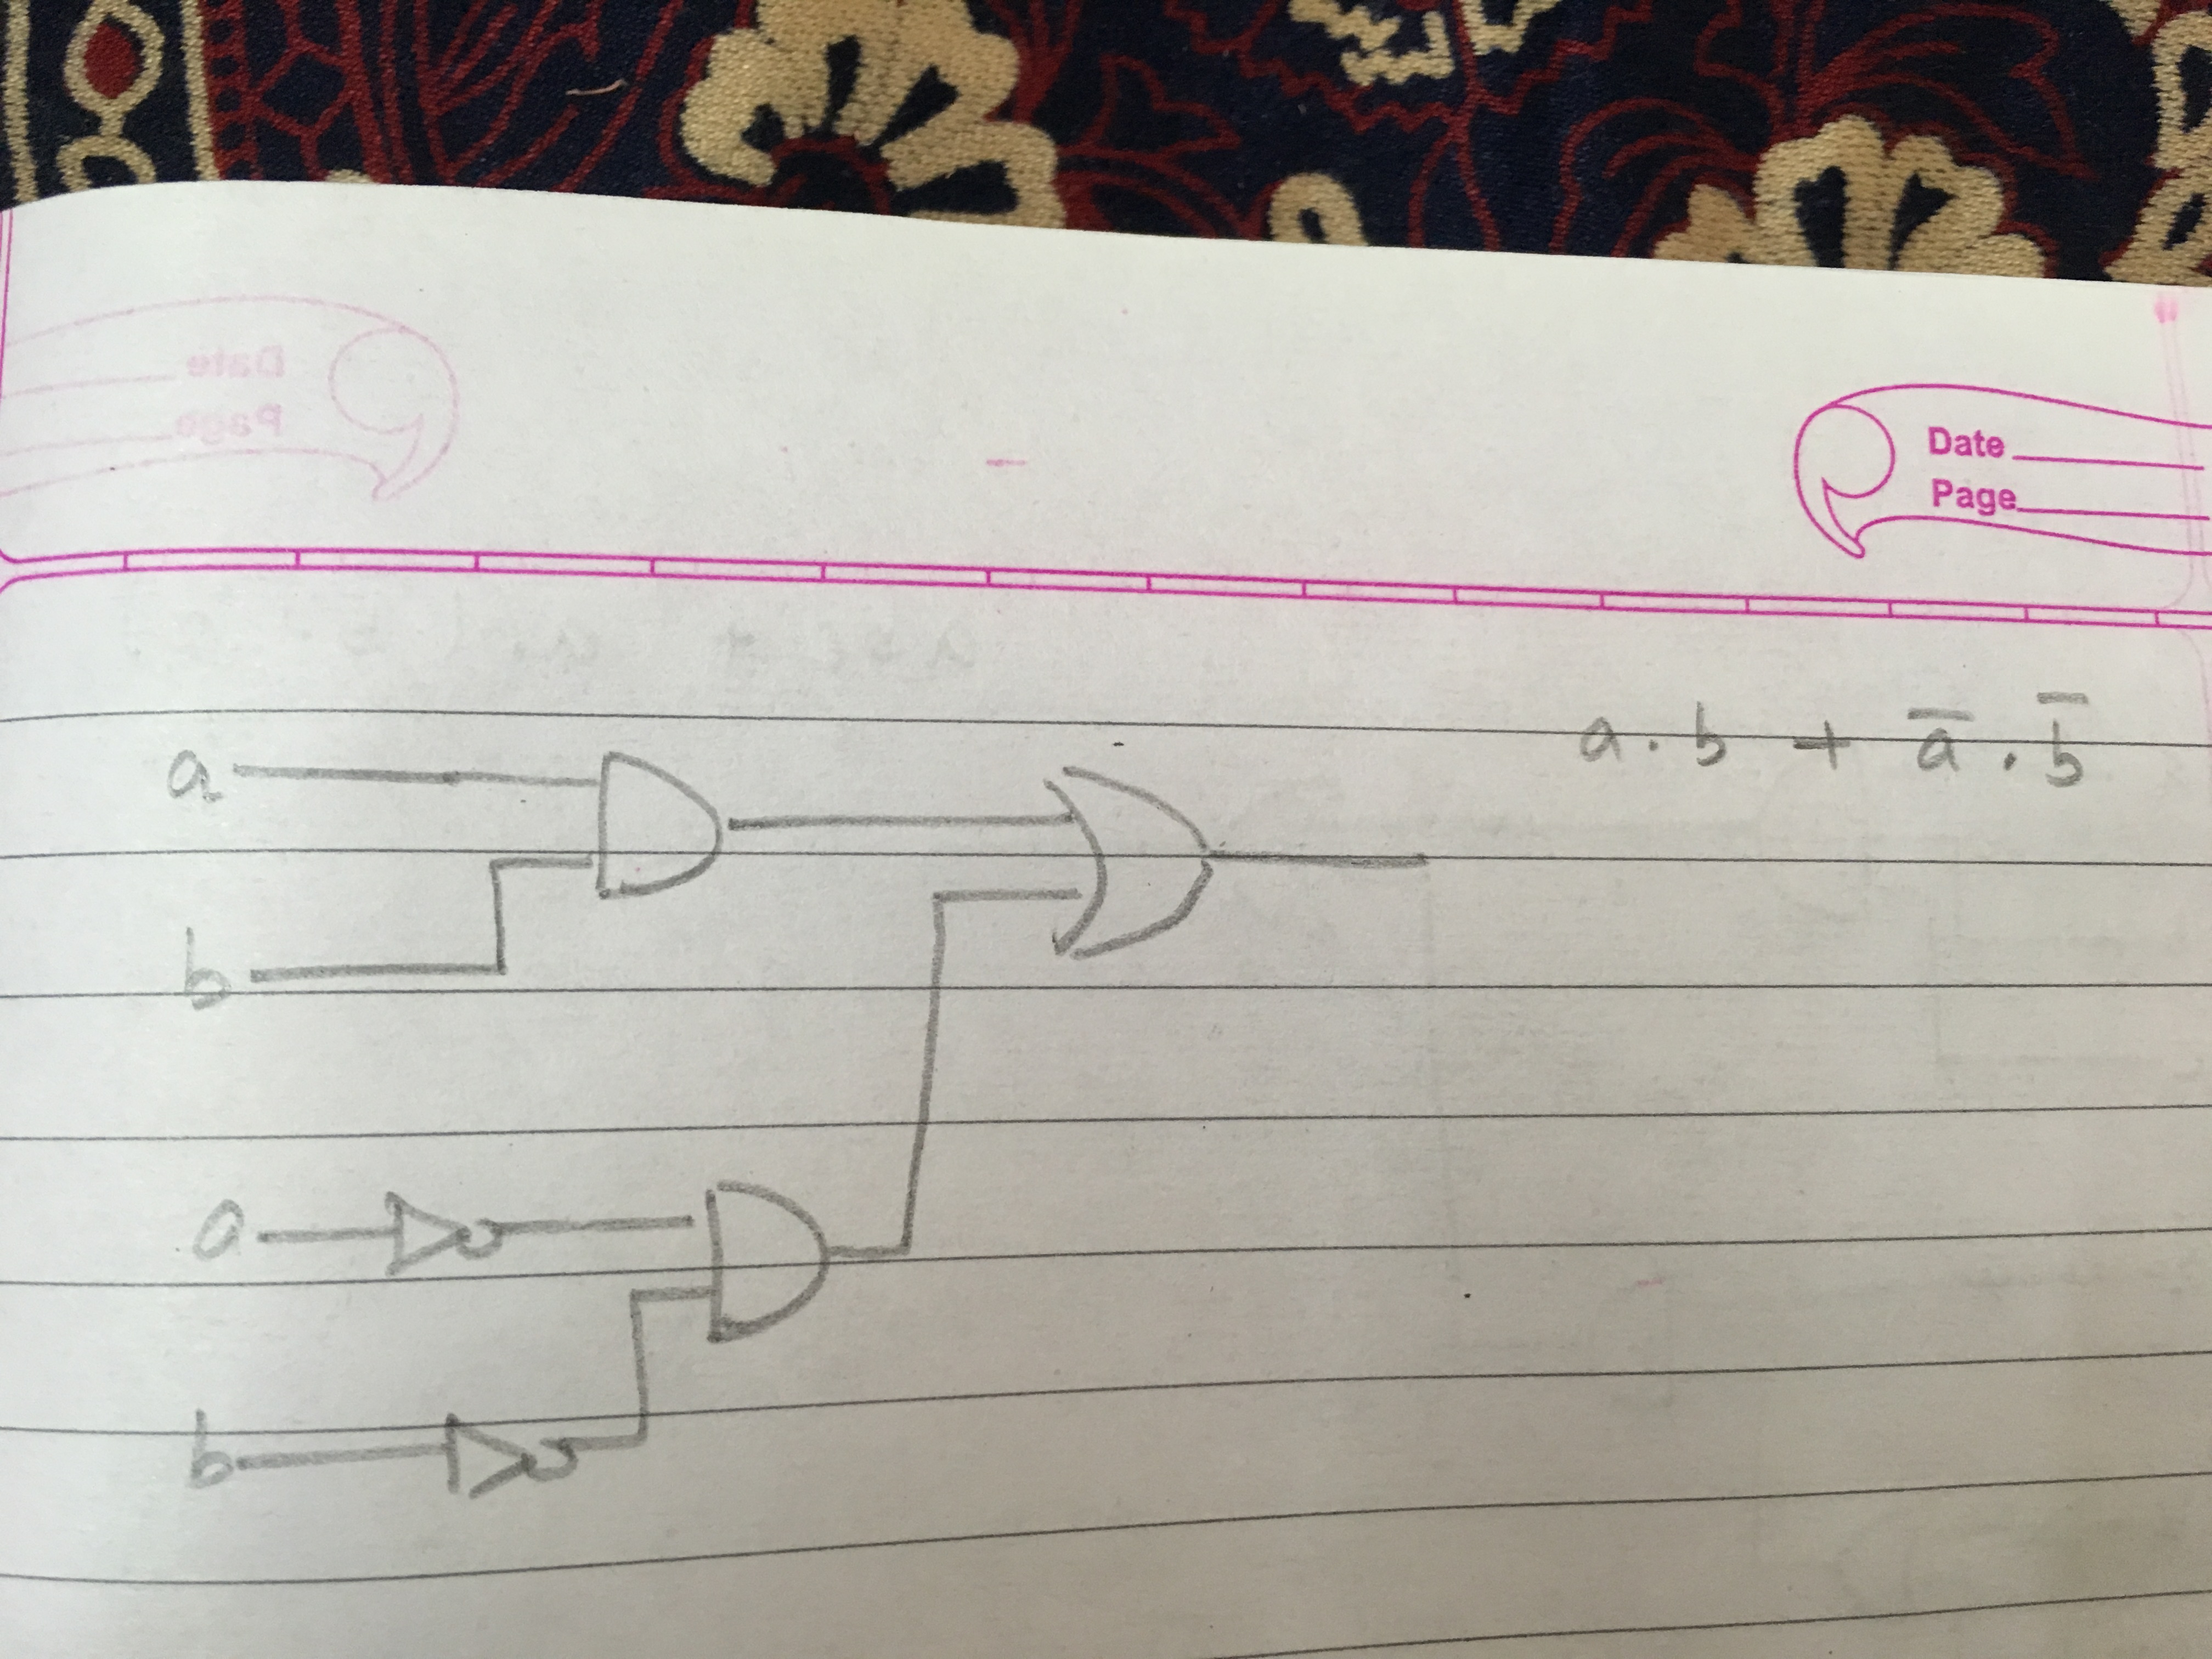 Date
Page
a . b + a̅ . b̅
a
b
a
b